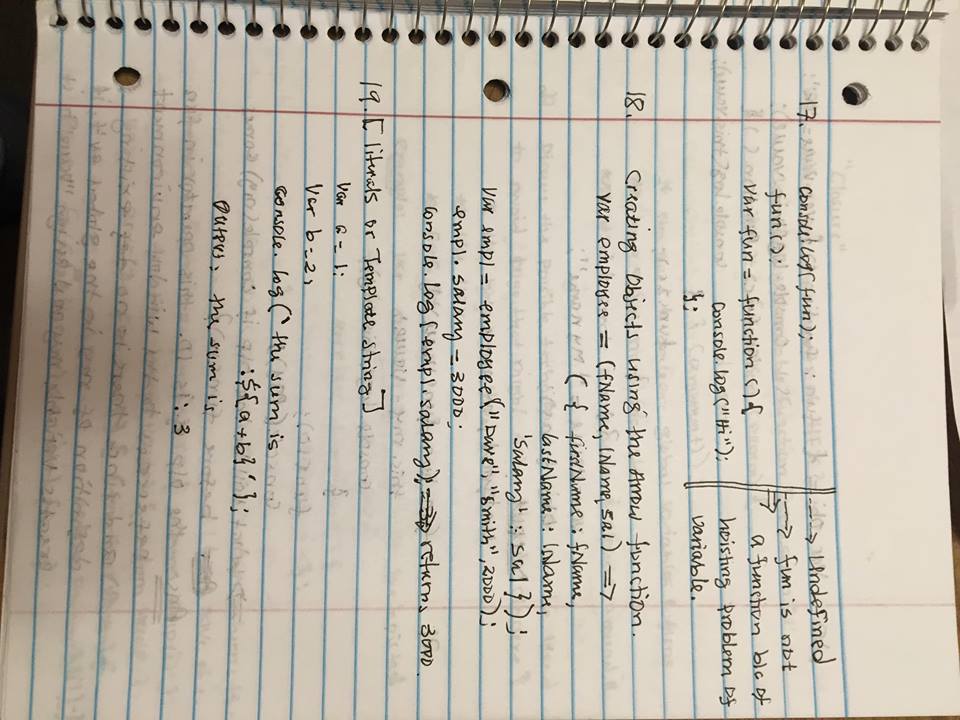 17. console.log(fun); ---> Undefined
fun(); ---> fun is not
var fun = function(){ a function b/c of
console.log("Hi"); hoisting problem of
}; variable.
18. Creating Objects using the Arrow function.
var employee = (fName, lName, sal) =>
( { firstName : fName,
lastName : lName,
'salary' : sal } );
var empl = employee("Dave", "Smith", 2000);
empl.salary = 3000;
console.log(empl.salary); returns 3000.
19. [ literals or Template string ]
var a = 1;
var b = 2;
console.log(` the sum is
: ${a+b}`);
Output: the sum is : 3